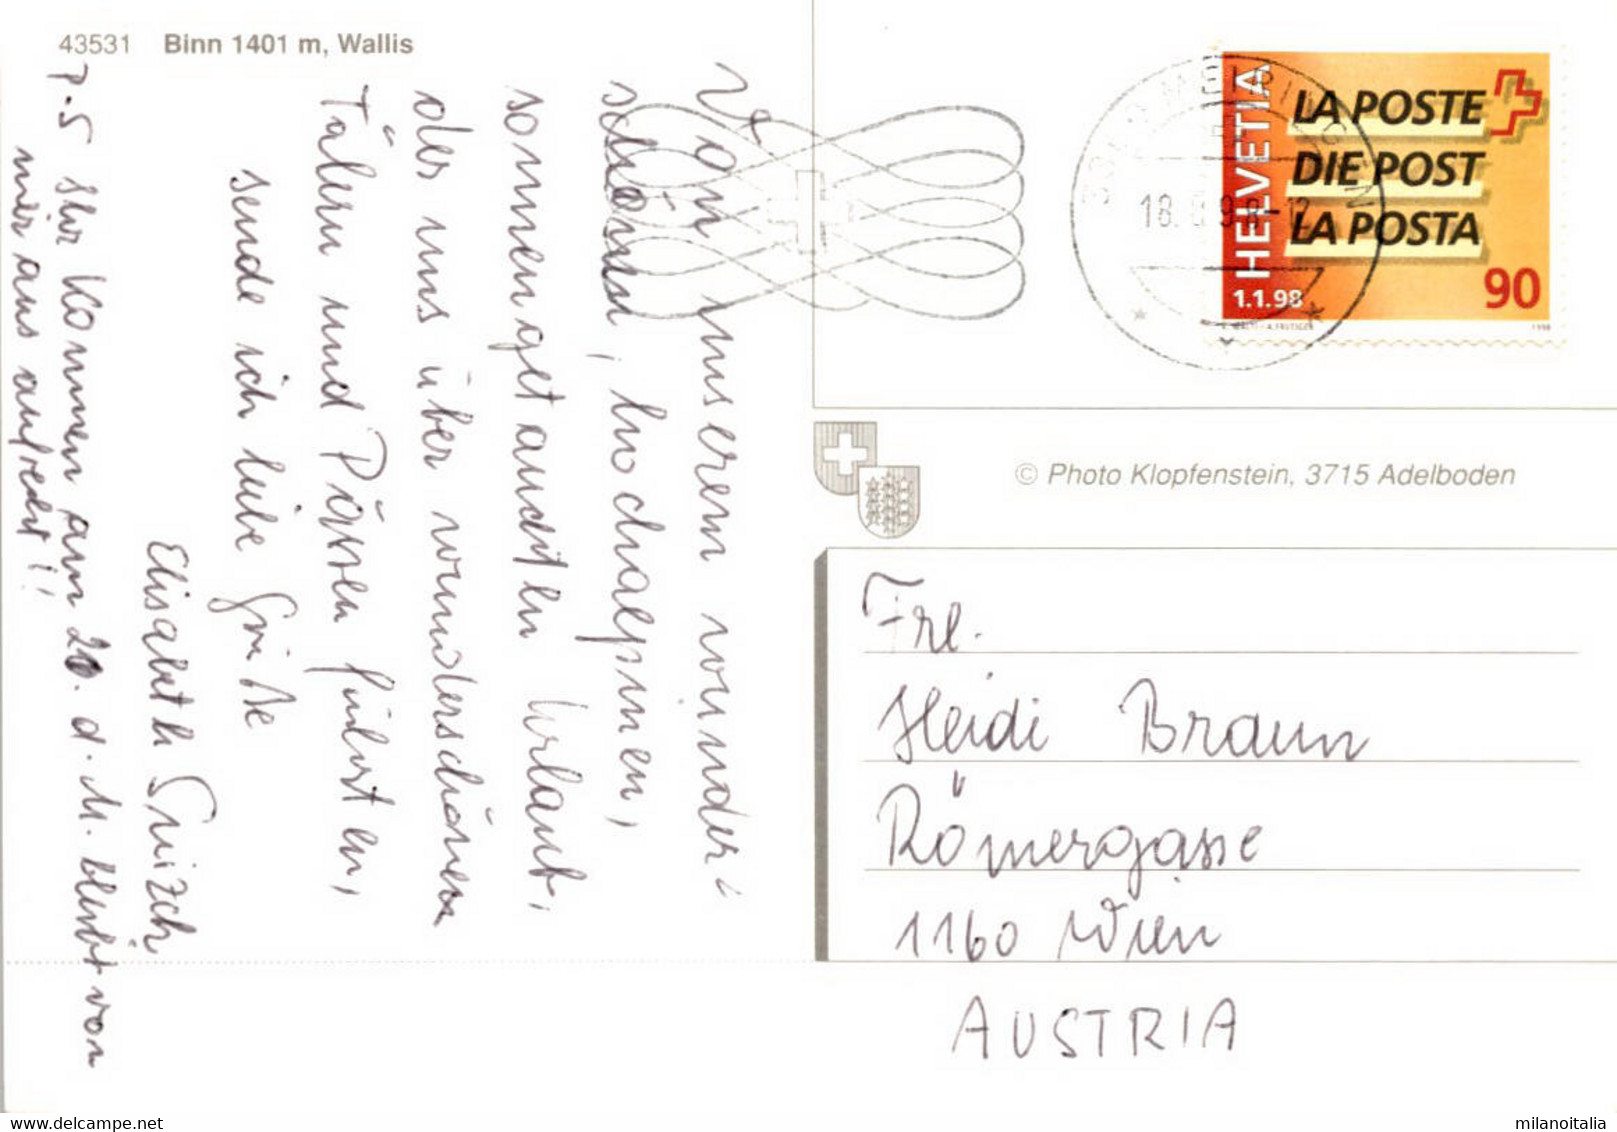 43531 Binn 1401 m, Wallis
Von unserem wunder-
schönen, hochalpinen,
sonnengetauchten Urlaub,
der uns über wunderschönen
Tälern und Pässen führten,
sende ich liebe Grüße
Elisabeth
P.S Ihr Kommen am 20. d. M. bleibt von
mir aus aufrecht!!
HELVETIA
LA POSTE
DIE POST
LA POSTA
1.1.98
90
1998
© Photo Klopfenstein, 3715 Adelboden
Frl.
Heidi Braun
Römergasse
1160 Wien
AUSTRIA
delcampe.net
milanoitalia